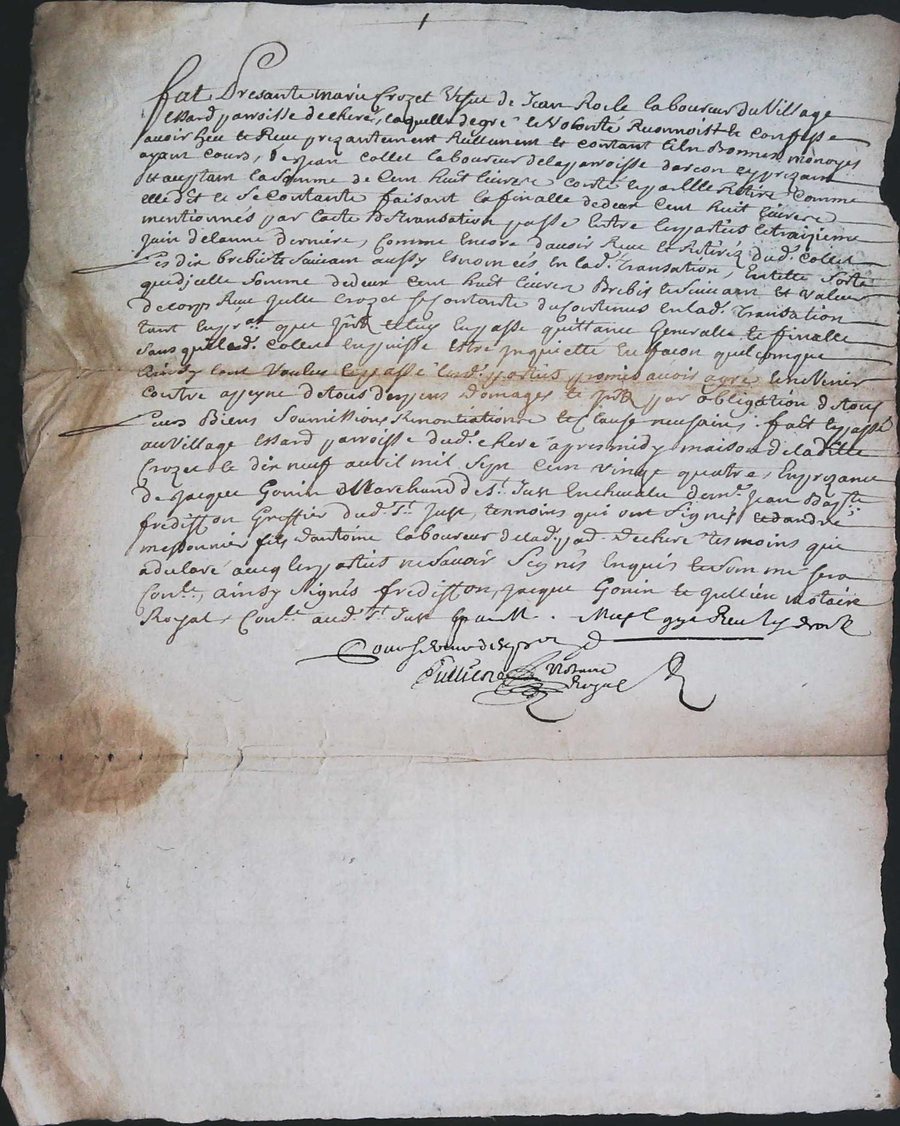 fut Presante marie Crozet Vefue de Jean Rocle laboureur du Village
Essard parroisse de cheré, laquelle de gré et Volonté Reconnoist et confesse
avoir heu et Receu prezantement Rellement et contant en Bonnes monoyes
ayant cours, de Jean Collet laboureur de la parroisse darcon cy prezant
et aceptant la Somme de Cent huit livres conté et par Elle Retiré Comme
elle dit et Se Contante faisant la finalle de deux Cent huit livres
mentionnés par lacte de transation passé Entre les parties le traizieme
Juin de lanné derniere, Comme Encore davoir Receu et Retiréz dud. Collet
les dix brebis et Suivant aussy Esnoncés En lad. transation, En telle Sorte
que dicelle Somme de deux Cent huit livres Brebis et Suivant et Valeur
de corps Receu Jcelle Crozet Se Contante du Contenus En lad. transation
tant En pral. que Jntz et luy En passe quittance Generalle et finalle
Sans que led. Collet En puisse Estre Jnquietté En facon quelconque
Ainsy lont Voulus et passé lesd. parties promis avoir agré et ne Venir
Contre a peyne de tous despens domages et Jntz par obligation de tous
leurs Biens Soumissions Renontiations et Clauses necessaires. fait et passé
au Village Essard parroisse dud. cheré apres midy maison de ladite
Crozet le dix neuf avril mil Sept Cent Vingt quatre, En prezance
de Jacque Gonin Marchand de St. Just En chevalu de me. Jean Bapte
fredisson Greffier dud. St. Just, temoins qui ont Signés et dandré
mesonnier fils dantoine laboureur de lad. par. de cheré tesmoins qui
a declaré avecq les parties ne Savoir Seignés Enquis et Somme Sera
Conle, ainsy Signés fredisson, Jacque Gonin et Jullien notaire
Royal, Conle aud. St. Just
Jullien Notaire
Royal